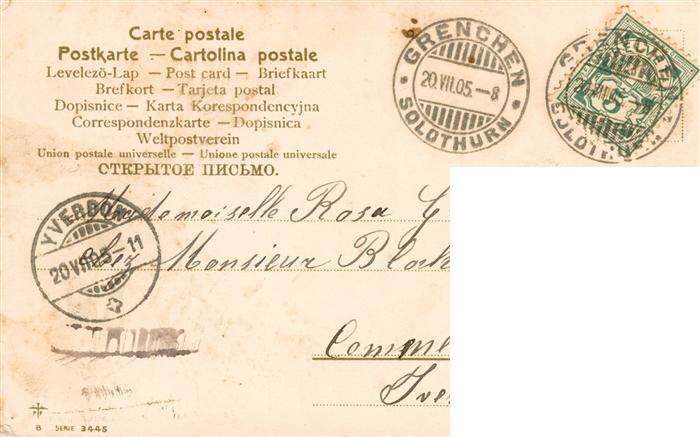 Carte postale
Postkarte — Cartolina postale
Levelező-Lap — Post card — Briefkaart
Brefkort — Tarjeta postal
Dopisnice — Karta Korespondencyjna
Correspondenzkarte — Dopisnica
Weltpostverein
Union postale universelle — Unione postale universale
ОТКРЫТОЕ ПИСЬМО.
GRENCHEN
20.VII.05.–8
SOLOTHURN
5
YVERDON
20 VII 05–11
Mademoiselle Rosa G
chez Monsieur
B SERIE 3445